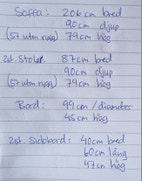 Soffa: 206cm bred
90cm djup
(57 utan rygg) 79cm hög
2st. Stolar: 87cm bred
90cm djup
(57 utan rygg) 79cm hög
Bord: 99cm/diameter
45cm hög
2st. Sidobord: 40cm bred
60cm lång
47cm hög